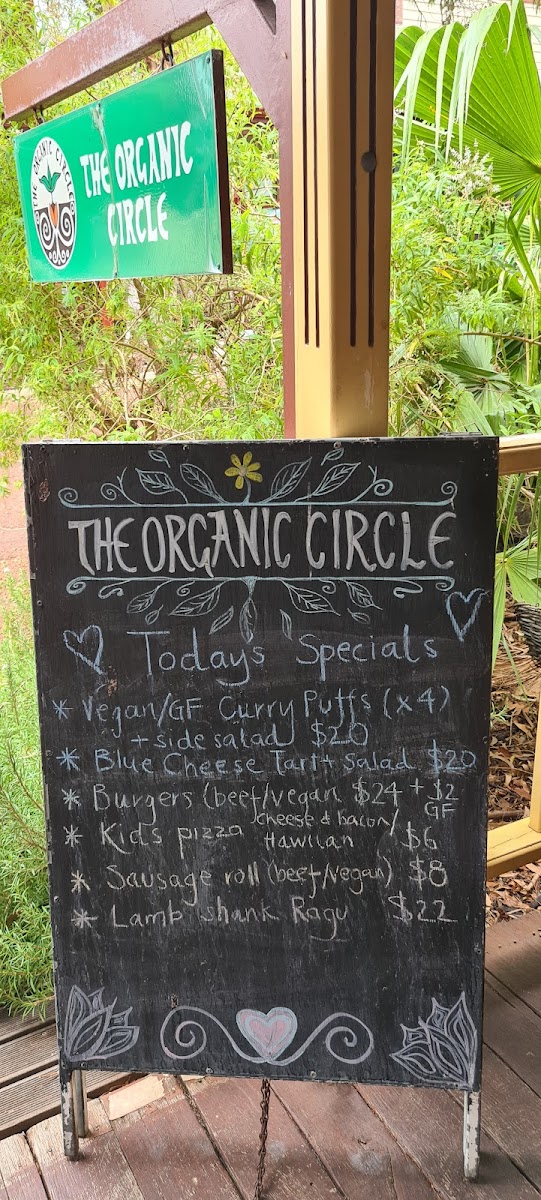 THE ORGANIC CIRCLE
THE ORGANIC
CIRCLE
THE ORGANIC CIRCLE
Todays Specials
* Vegan/GF Curry Puffs (x4)
+ side salad $20
* Blue Cheese Tart + Salad $20
* Burgers (beef/vegan $24 + $2
GF
* Kids pizza cheese & bacon/
Hawiian $6
* Sausage roll (beef/vegan) $8
* Lamb shank Ragu $22